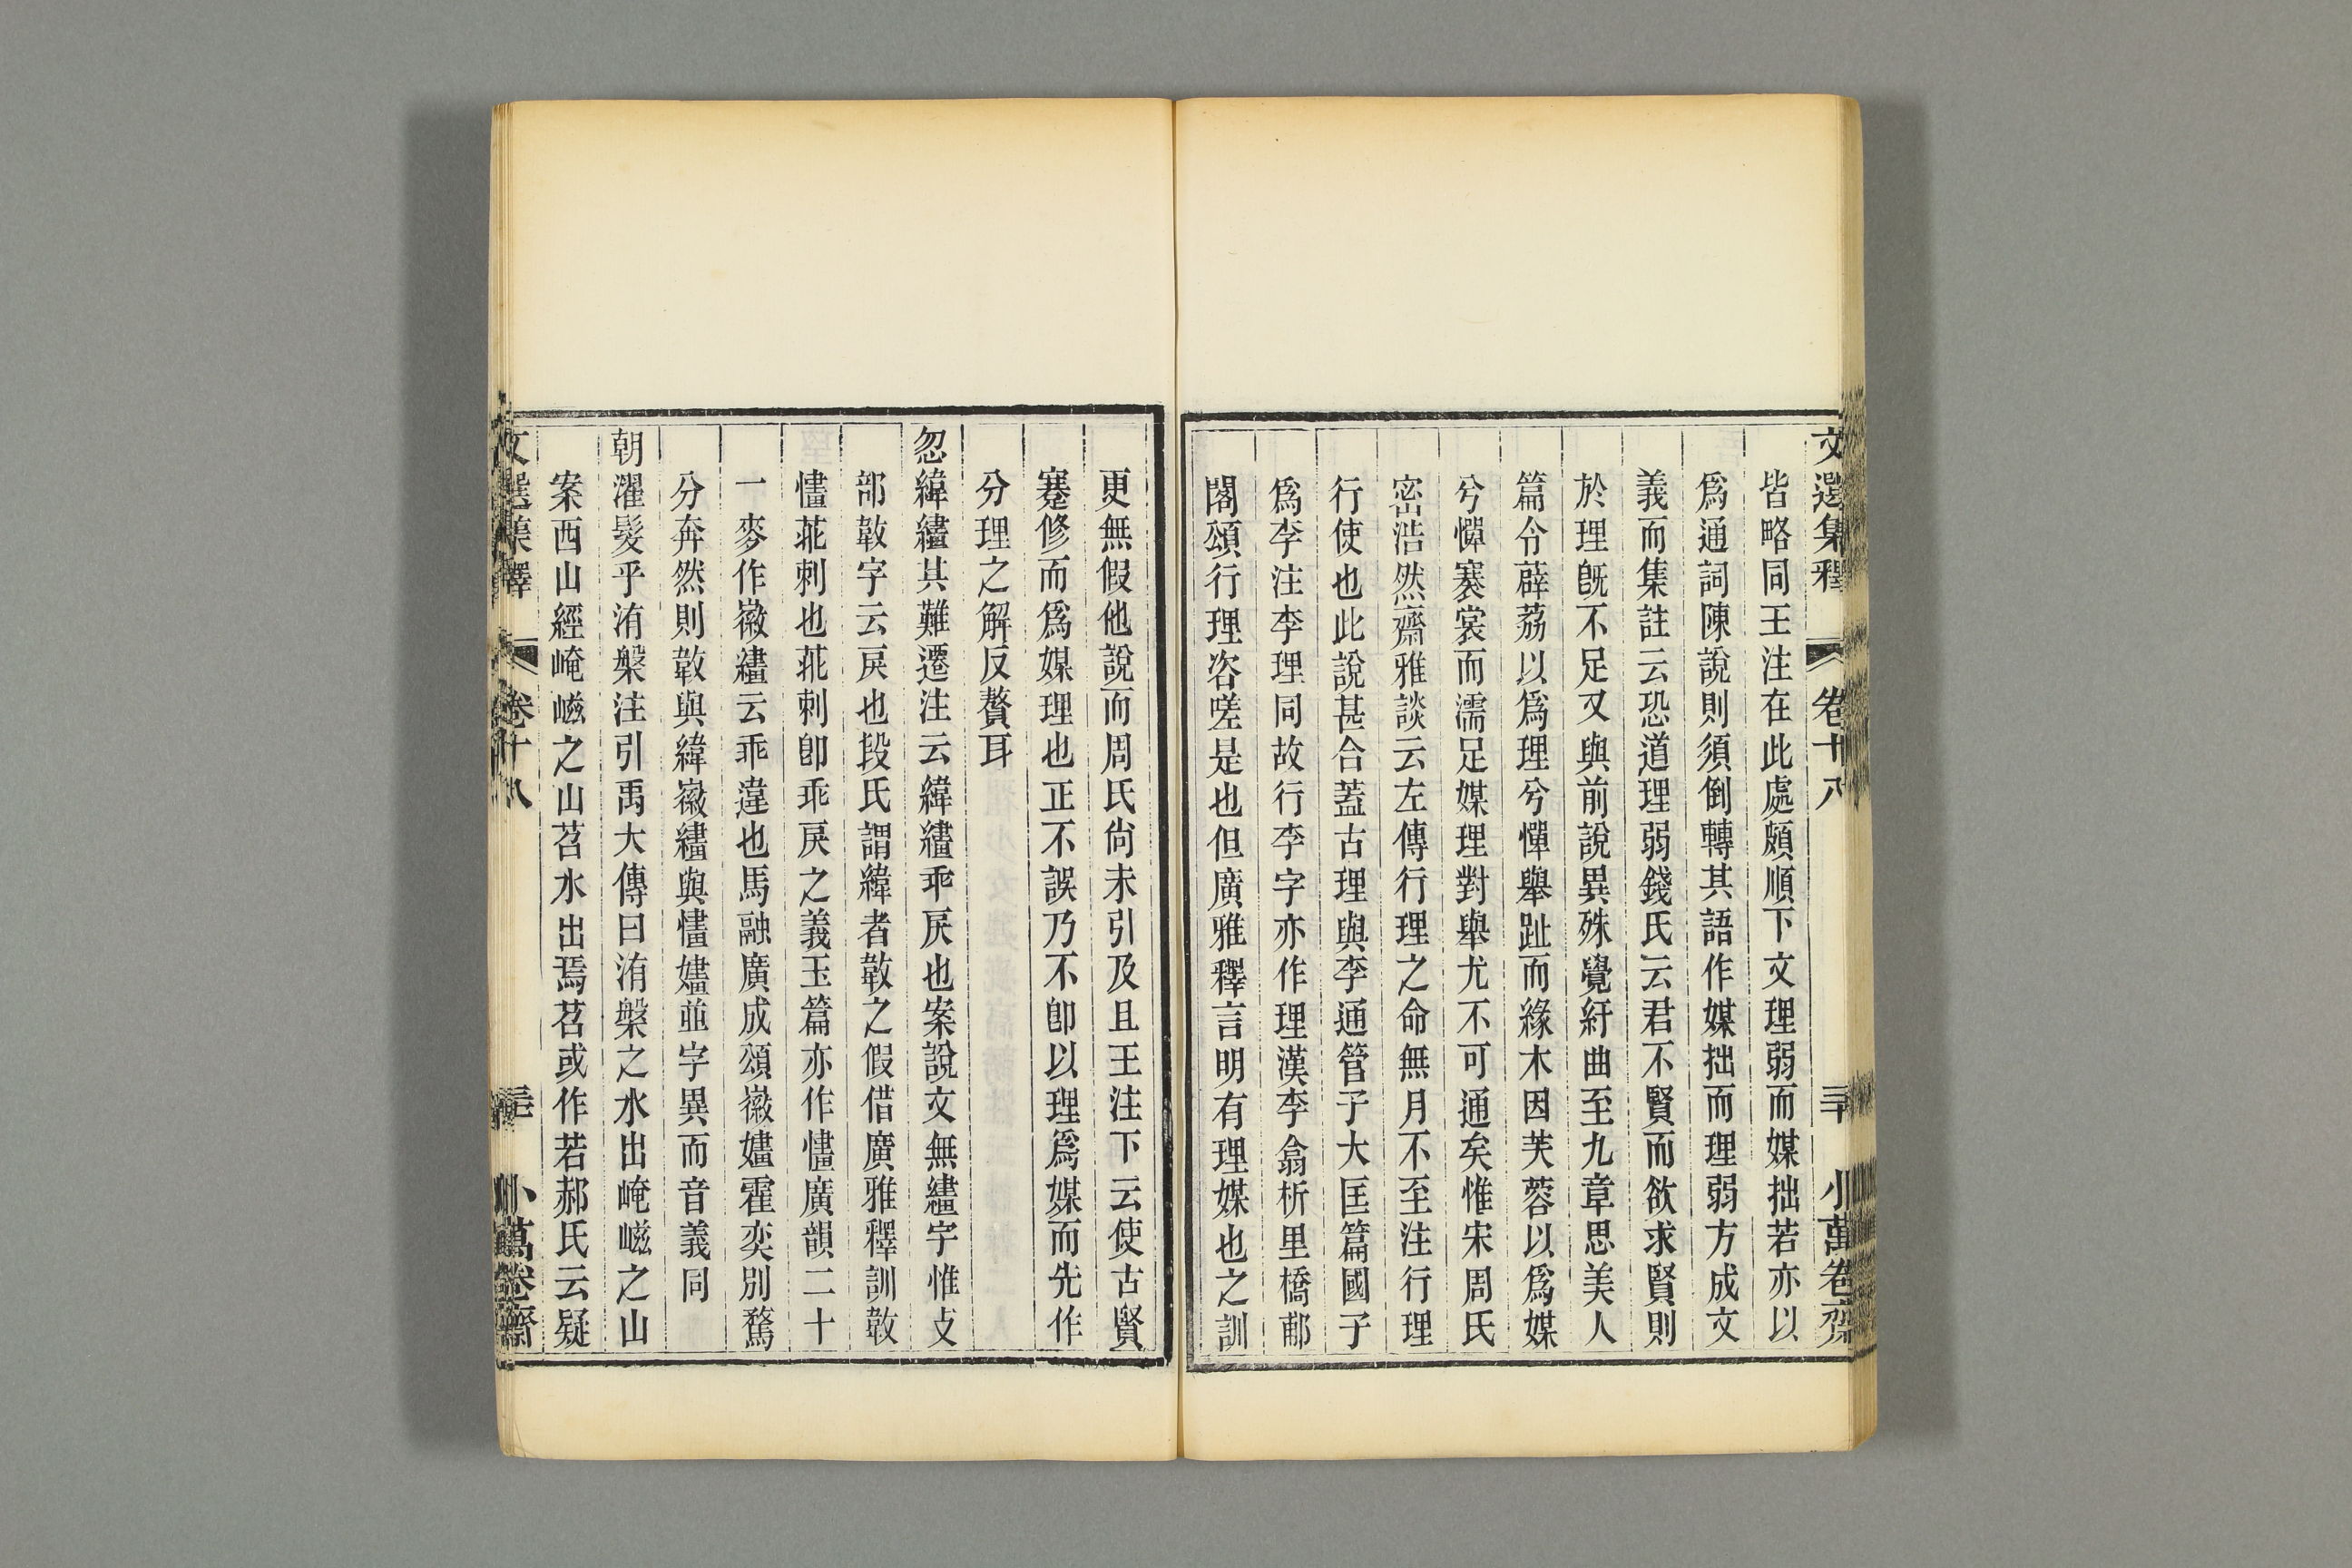 文選集釋 卷十八 三十 小萬卷齋
皆略同王注在此處頗順下文理弱而媒拙若亦以
爲通詞陳說則須倒轉其語作媒拙而理弱方成文
義而集註云恐道理弱錢氏云君不賢而欲求賢則
於理旣不足又與前說異殊覺紆曲至九章思美人
篇令薜荔以爲理兮憚舉趾而緣木因芙蓉以爲媒
兮憚褰裳而濡足媒理對舉尤不可通矣惟宋周氏
密浩然齋雅談云左傳行理之命無月不至注行理
行使也此說甚合蓋古理與李通管子大匡篇國子
爲李注李理同故行李字亦作理漢李翕析里橋郙
閣頌行理咨嗟是也但廣雅釋言明有理媒也之訓
更無假他說而周氏尙未引及且王注下云使古賢
蹇修而爲媒理也正不誤乃不卽以理爲媒而先作
分理之解反贅耳
忽緯繣其難遷注云緯繣乖戾也案說文無繣字惟攴
部𢾁字云戾也段氏謂緯者𢾁之假借廣雅釋訓𢾁
㦎𠁥刺也𠁥刺卽乖戾之義玉篇亦作㦎廣韻二十
一麥作徽繣云乖違也馬融廣成頌徽嫿霍奕別鶩
分奔然則𢾁與緯徽繣與㦎嫿並字異而音義同
朝濯髮乎洧槃注引禹大傳曰洧槃之水出崦嵫之山
案西山經崦嵫之山苕水出焉苕或作若郝氏云疑
文選集釋 卷十八 小萬卷齋